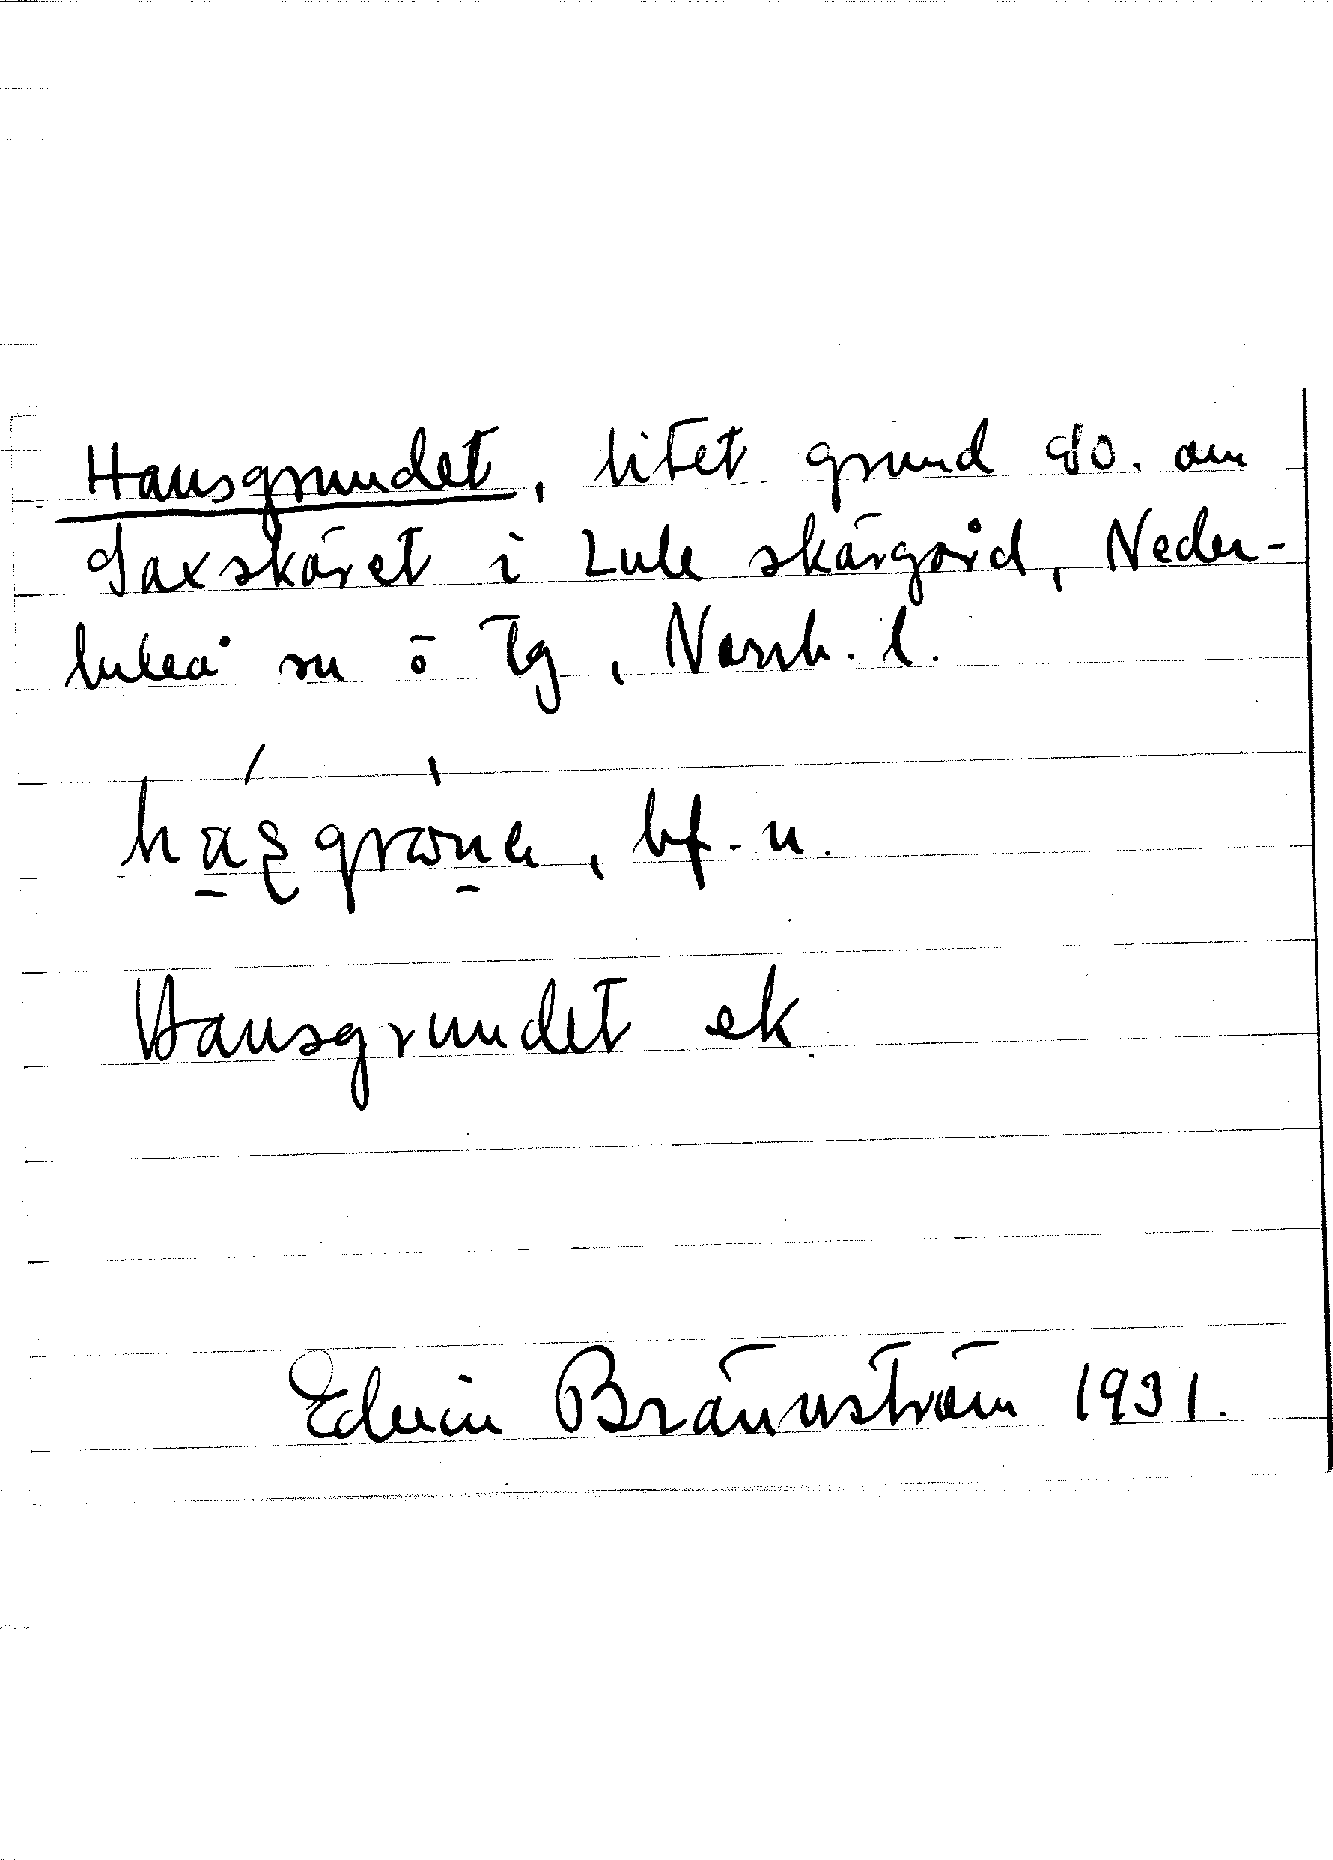 Hansgrundet, litet grund SO. om
Saxskäret i Lule skärgård, Neder-
luleå sn ö Tg, Norrb. l.
bf. n.
Hansgrundet ek.
Edvin Brännström 1931.